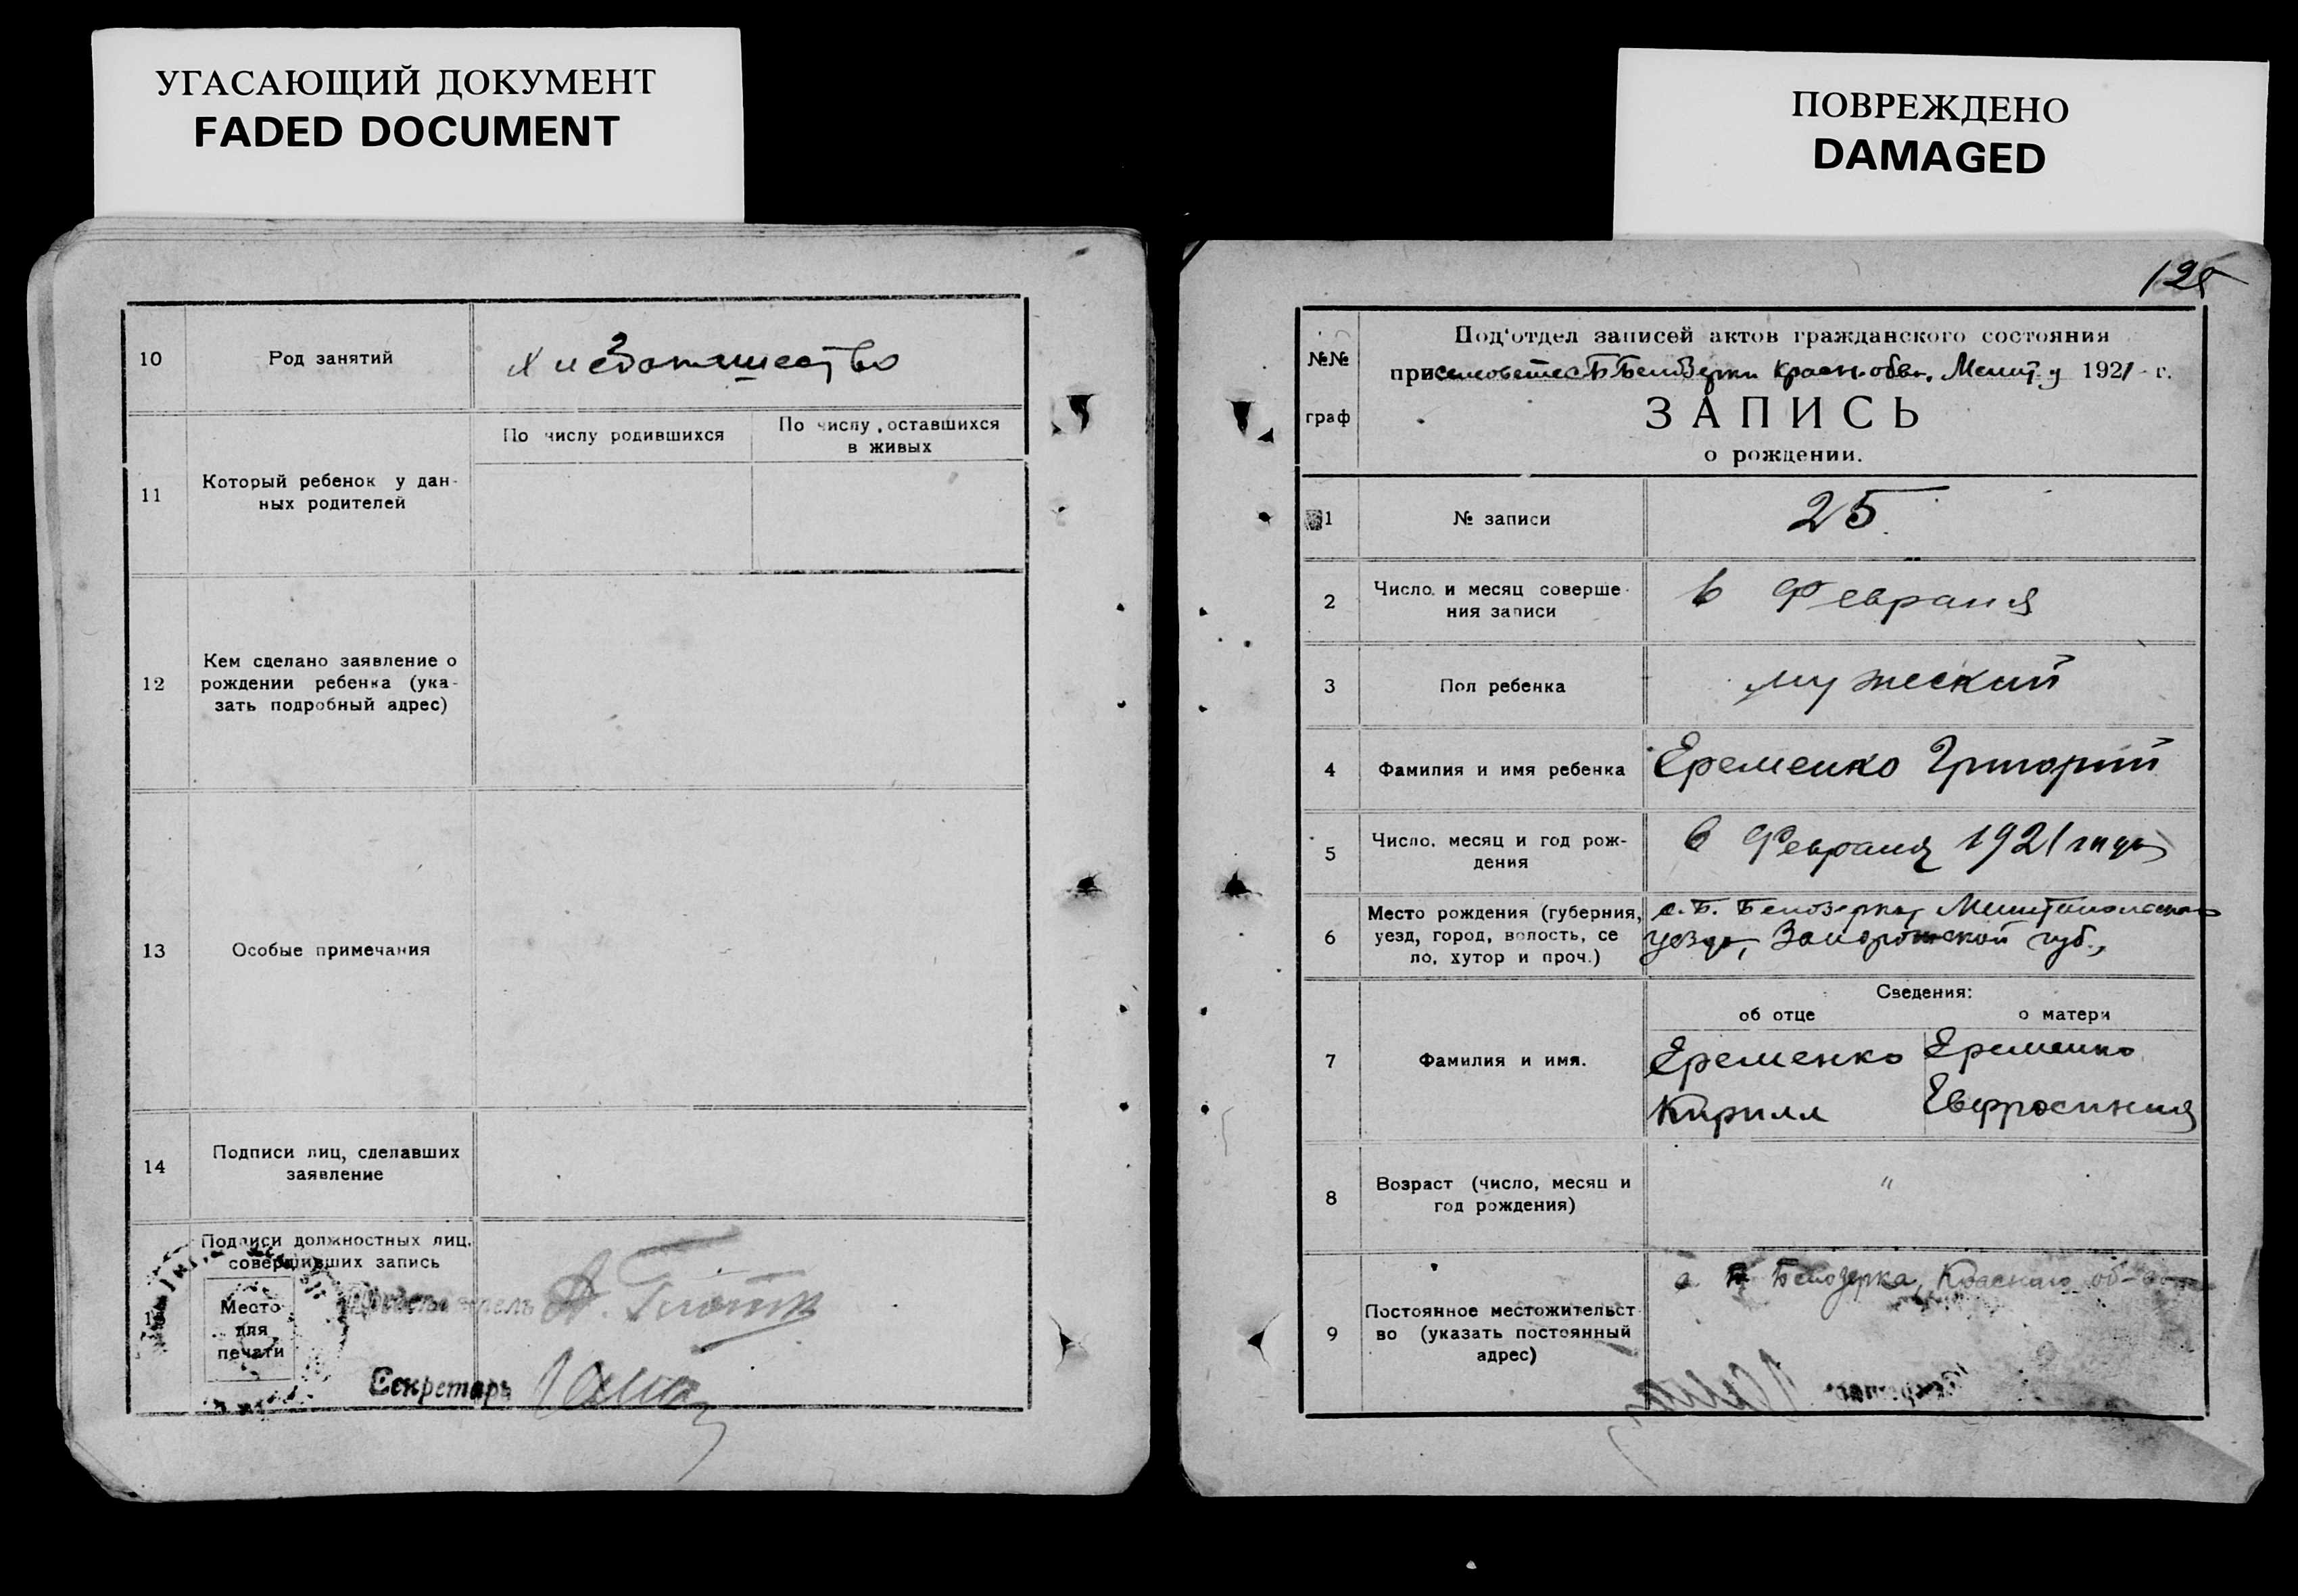 УГАСАЮЩИЙ ДОКУМЕНТ
FADED DOCUMENT
10
Род занятий
хлебопашество
11
Который ребенок у дан-
ных родителей
По числу родившихся
По числу оставшихся
в живых
12
Кем сделано заявление о
рождении ребенка (ука-
зать подробный адрес)
13
Особые примечания
14
Подписи лиц, сделавших
заявление
Подписи должностных лиц,
совершивших запись
Место
для
печати
Председатель
Секретарь
ПОВРЕЖДЕНО
DAMAGED
125
№№
граф
Под'отдел записей актов гражданского состояния
при сельсовете с Б Белозерки Красн. обв. Мелит у 1921 г.
ЗАПИСЬ
о рождении.
1
№ записи
25
2
Число и месяц соверше-
ния записи
6 Февраля
3
Пол ребенка
мужеский
4
Фамилия и имя ребенка
Еременко Григорий
5
Число, месяц и год рож-
дения
6 Февраля 1921 года
6
Место рождения (губерния,
уезд, город, волость, се
ло, хутор и проч.)
с. Б. Белозерка, Мелитопольского
уезда, Запорожской губ.,
Сведения:
об отце
о матери
7
Фамилия и имя.
Еременко
Кирилл
Еременко
Евфросиния
8
Возраст (число, месяц и
год рождения)
"
9
Постоянное местожительст-
во (указать постоянный
адрес)
с. Б. Белозерка, Красная